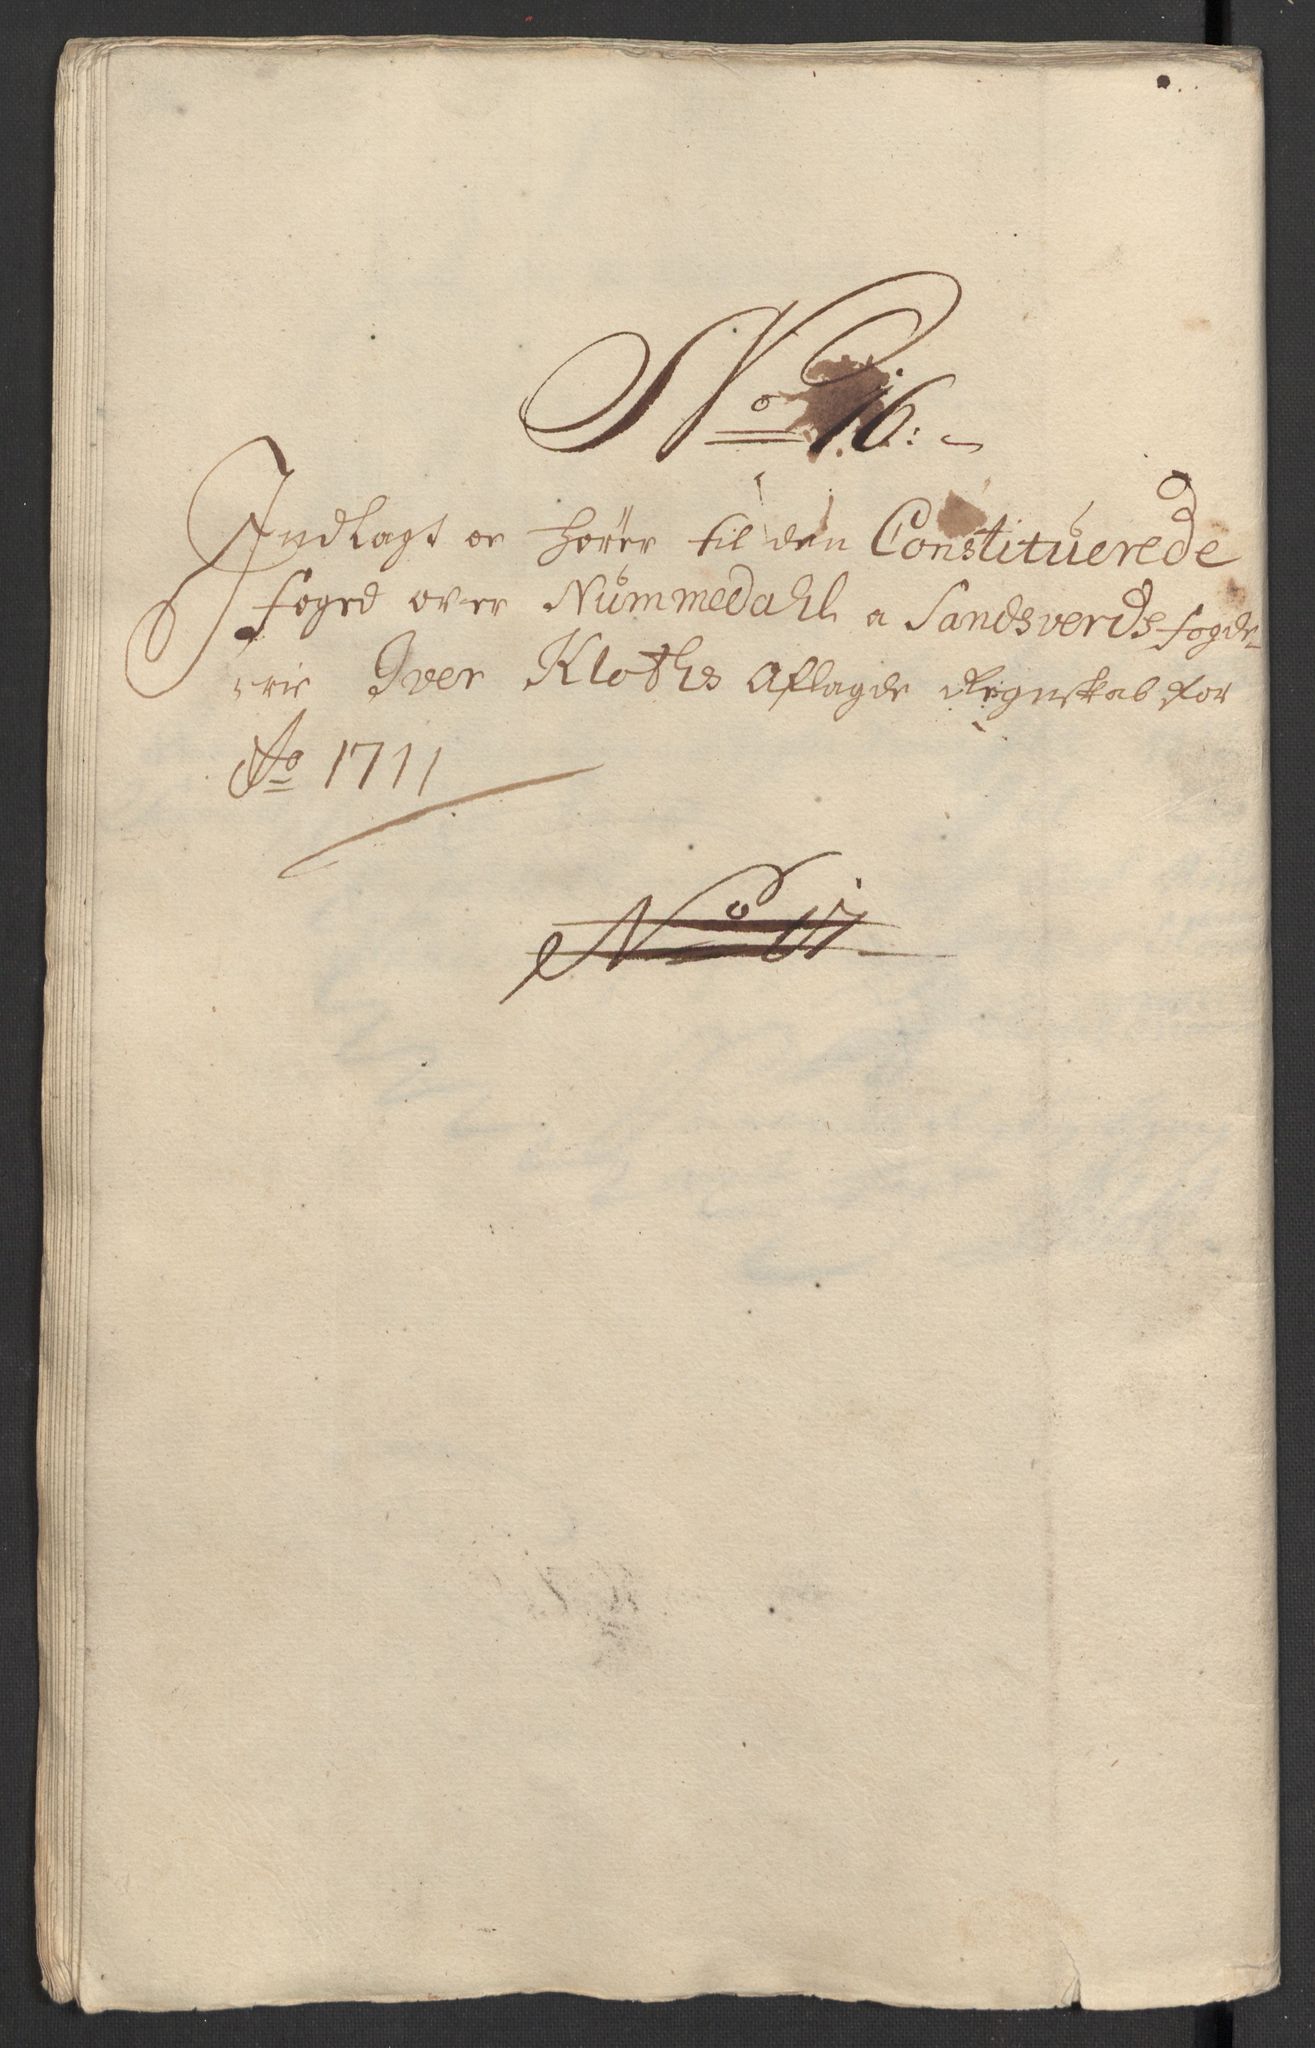 No 16:
Indlagt oc hører til den Constituerede
foged over Nummedahl a Sandsverds fogde-
rie Iver Kloths Aflagde Regnskab for
Ao 1711
No 17